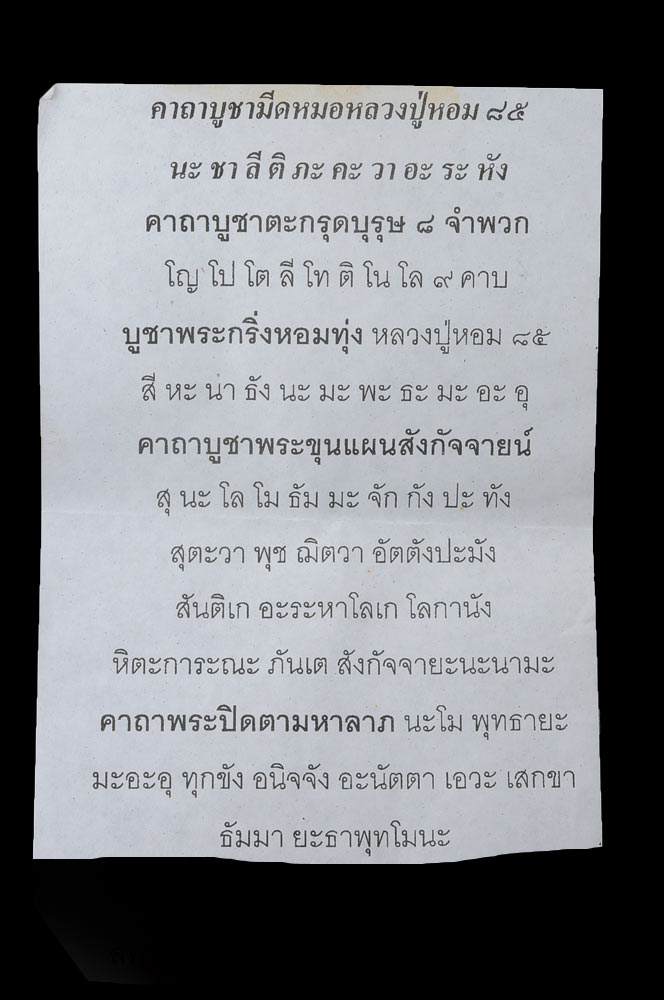 คาถาบูชามีดหมอหลวงปู่หอม ๘๕
นะ ชา ลี ติ ภะ คะ วา อะ ระ หัง
คาถาบูชาตะกรุดบุรุษ ๘ จำพวก
โญ โป โต ลี โท ติ โน โล ๙ คาบ
บูชาพระกริ่งหอมทุ่ง หลวงปู่หอม ๘๕
สี หะ นา ธัง นะ มะ พะ ธะ มะ อะ อุ
คาถาบูชาพระขุนแผนสังกัจจายน์
สุ นะ โล โม ธัม มะ จัก กัง ปะ ทัง
สุตะวา พุช ฌิตวา อัตตังปะมัง
สันติเก อะระหาโลเก โลกานัง
หิตะการะณะ ภันเต สังกัจจายะนะนามะ
คาถาพระปิดตามหาลาภ นะโม พุทธายะ
มะอะอุ ทุกขัง อนิจจัง อะนัตตา เอวะ เสกขา
ธัมมา ยะธาพุทโมนะ